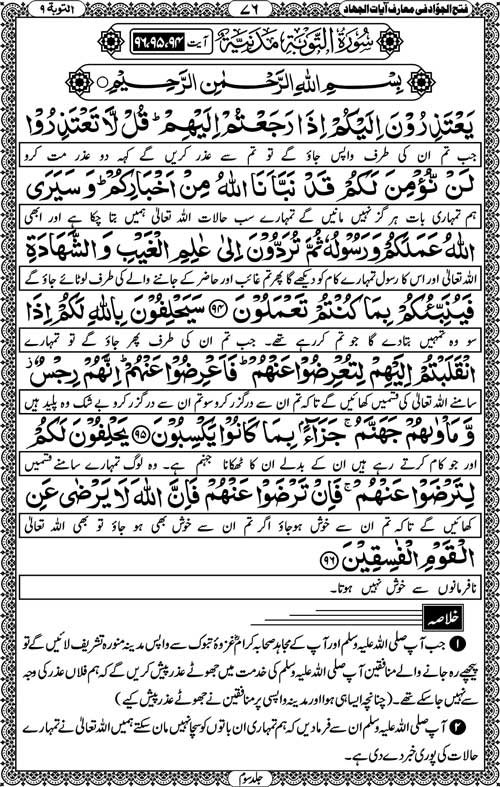 فتح الجوّاد فی معارف آیات الجھاد ۷۶ التوبۃ ۹
سُوْرَۃُ التَّوْبَۃِ مَدَنِیَّۃٌ آیت ۹۴،۹۵،۹۶
بِسْمِ اللّٰہِ الرَّحْمٰنِ الرَّحِیْمِ
یَعْتَذِرُوْنَ اِلَیْکُمْ اِذَا رَجَعْتُمْ اِلَیْھِمْ ؕ قُلْ لَّا تَعْتَذِرُوْا
جب تم ان کی طرف واپس جاؤ گے تو تم سے عذر کریں گے کہہ دو عذر مت کرو
لَنْ نُّؤْمِنَ لَکُمْ قَدْ نَبَّاَنَا اللّٰہُ مِنْ اَخْبَارِکُمْ ؕ وَسَیَرَی
ہم تمہاری بات ہرگز نہیں مانیں گے تمہارے سب حالات اللہ تعالیٰ ہمیں بتا چکا ہے اور ابھی
اللّٰہُ عَمَلَکُمْ وَرَسُوْلُہٗ ثُمَّ تُرَدُّوْنَ اِلٰی عٰلِمِ الْغَیْبِ وَالشَّھَادَۃِ
اللہ تعالیٰ اور اس کا رسول تمہارے کام کو دیکھے گا پھر تم غائب اور حاضر کے جاننے والے کی طرف لوٹائے جاؤ گے
فَیُنَبِّئُکُمْ بِمَا کُنْتُمْ تَعْمَلُوْنَ ﴿۹۴﴾ سَیَحْلِفُوْنَ بِاللّٰہِ لَکُمْ اِذَا
سو وہ تمہیں بتا دے گا جو تم کر رہے تھے۔ جب تم ان کی طرف پھر جاؤ گے تو تمہارے
انْقَلَبْتُمْ اِلَیْھِمْ لِتُعْرِضُوْا عَنْھُمْ ؕ فَاَعْرِضُوْا عَنْھُمْ ؕ اِنَّھُمْ رِجْسٌ ز
سامنے اللہ تعالیٰ کی قسمیں کھائیں گے تاکہ تم ان سے درگزر کرو سو تم ان سے درگزر کرو بے شک وہ پلید ہیں
وَّ مَاْوٰىھُمْ جَھَنَّمُ ۚ جَزَآءًۢ بِمَا کَانُوْا یَکْسِبُوْنَ ﴿۹۵﴾ یَحْلِفُوْنَ لَکُمْ
اور جو کام کرتے رہے ہیں ان کے بدلے ان کا ٹھکانا جہنم ہے۔ وہ لوگ تمہارے سامنے قسمیں
لِتَرْضَوْا عَنْھُمْ ۚ فَاِنْ تَرْضَوْا عَنْھُمْ فَاِنَّ اللّٰہَ لَا یَرْضٰی عَنِ
کھائیں گے تاکہ تم ان سے خوش ہوجاؤ اگر تم ان سے خوش بھی ہو جاؤ تو بھی اللہ تعالیٰ
الْقَوْمِ الْفٰسِقِیْنَ ﴿۹۶﴾
نافرمانوں سے خوش نہیں ہوتا۔
خلاصہ
۱ جب آپ صلی اللہ علیہ وسلم اور آپ کے مجاہد صحابہ کرام غزوۂ تبوک سے واپس مدینہ منورہ تشریف لائیں گے تو
پیچھے رہ جانے والے منافقین آپ صلی اللہ علیہ وسلم کی خدمت میں جھوٹے عذر پیش کریں گے کہ ہم فلاں عذر کی وجہ
سے نہیں جا سکے تھے۔ (چنانچہ ایسا ہی ہوا اور مدینہ واپسی پر منافقین نے جھوٹے عذر پیش کیے)
۲ آپ صلی اللہ علیہ وسلم ان سے فرما دیں کہ ہم تمہاری ان باتوں کو سچا نہیں مان سکتے ہمیں اللہ تعالیٰ نے تمہارے
حالات کی پوری خبر دے دی ہے۔
جلد سوم